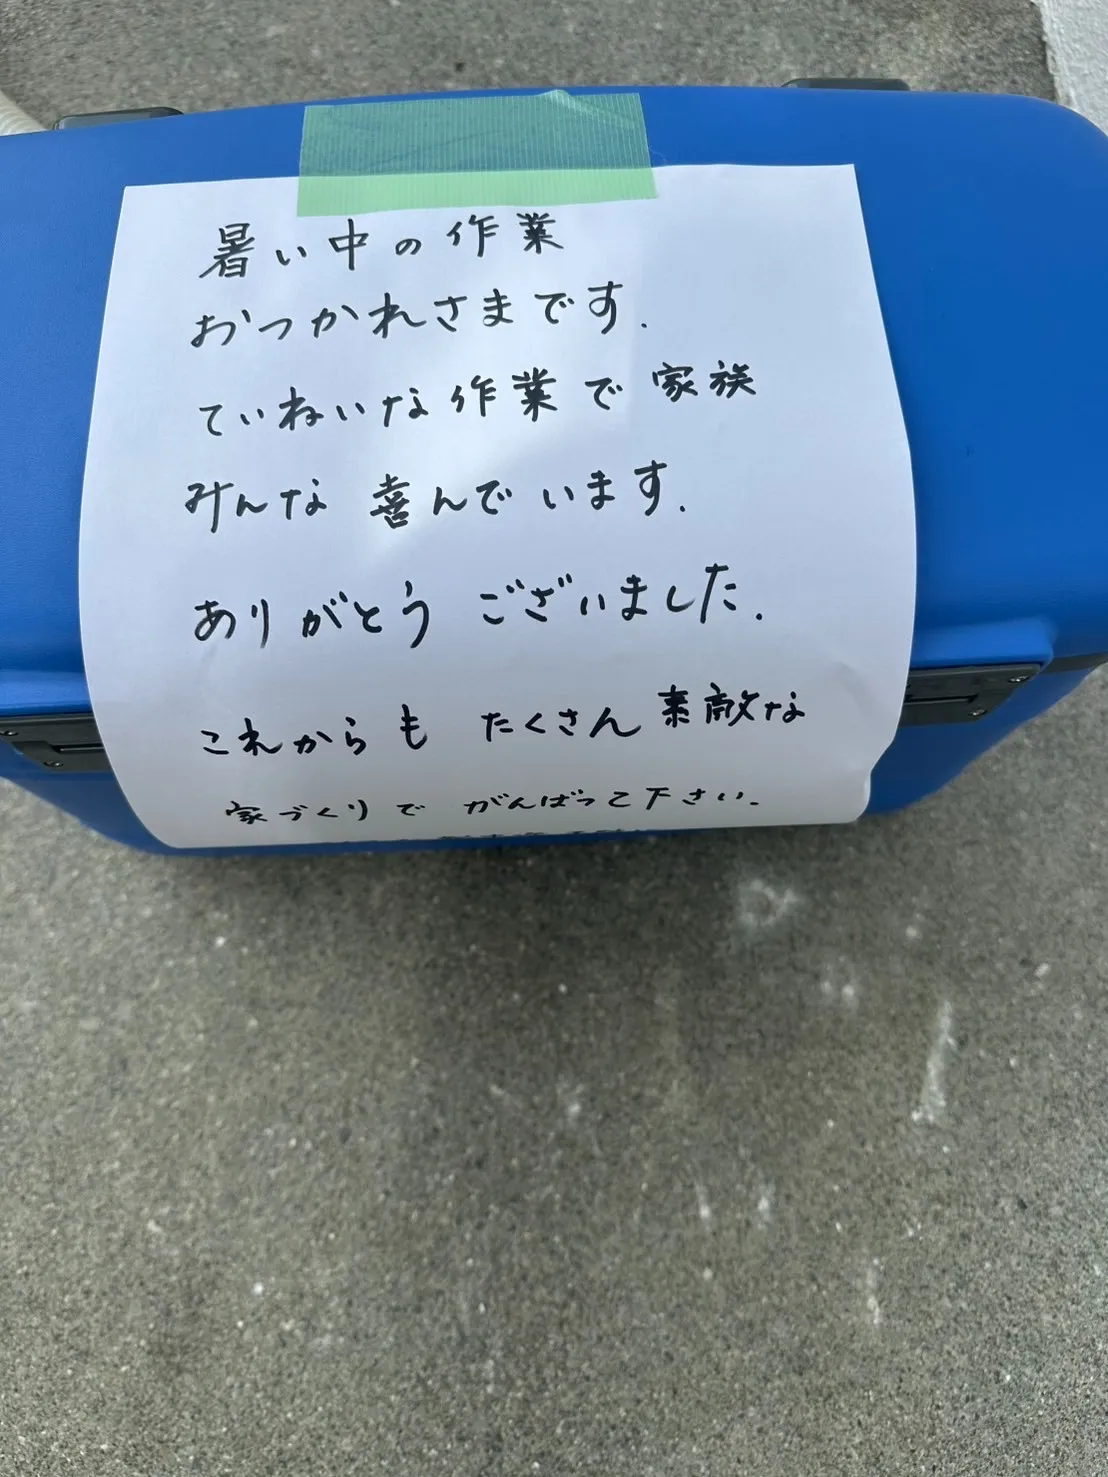 暑い中の作業
おつかれさまです.
ていねいな作業で家族
みんな 喜んでいます.
ありがとう ございました.
これからも たくさん素敵な
家づくりで がんばって下さい.